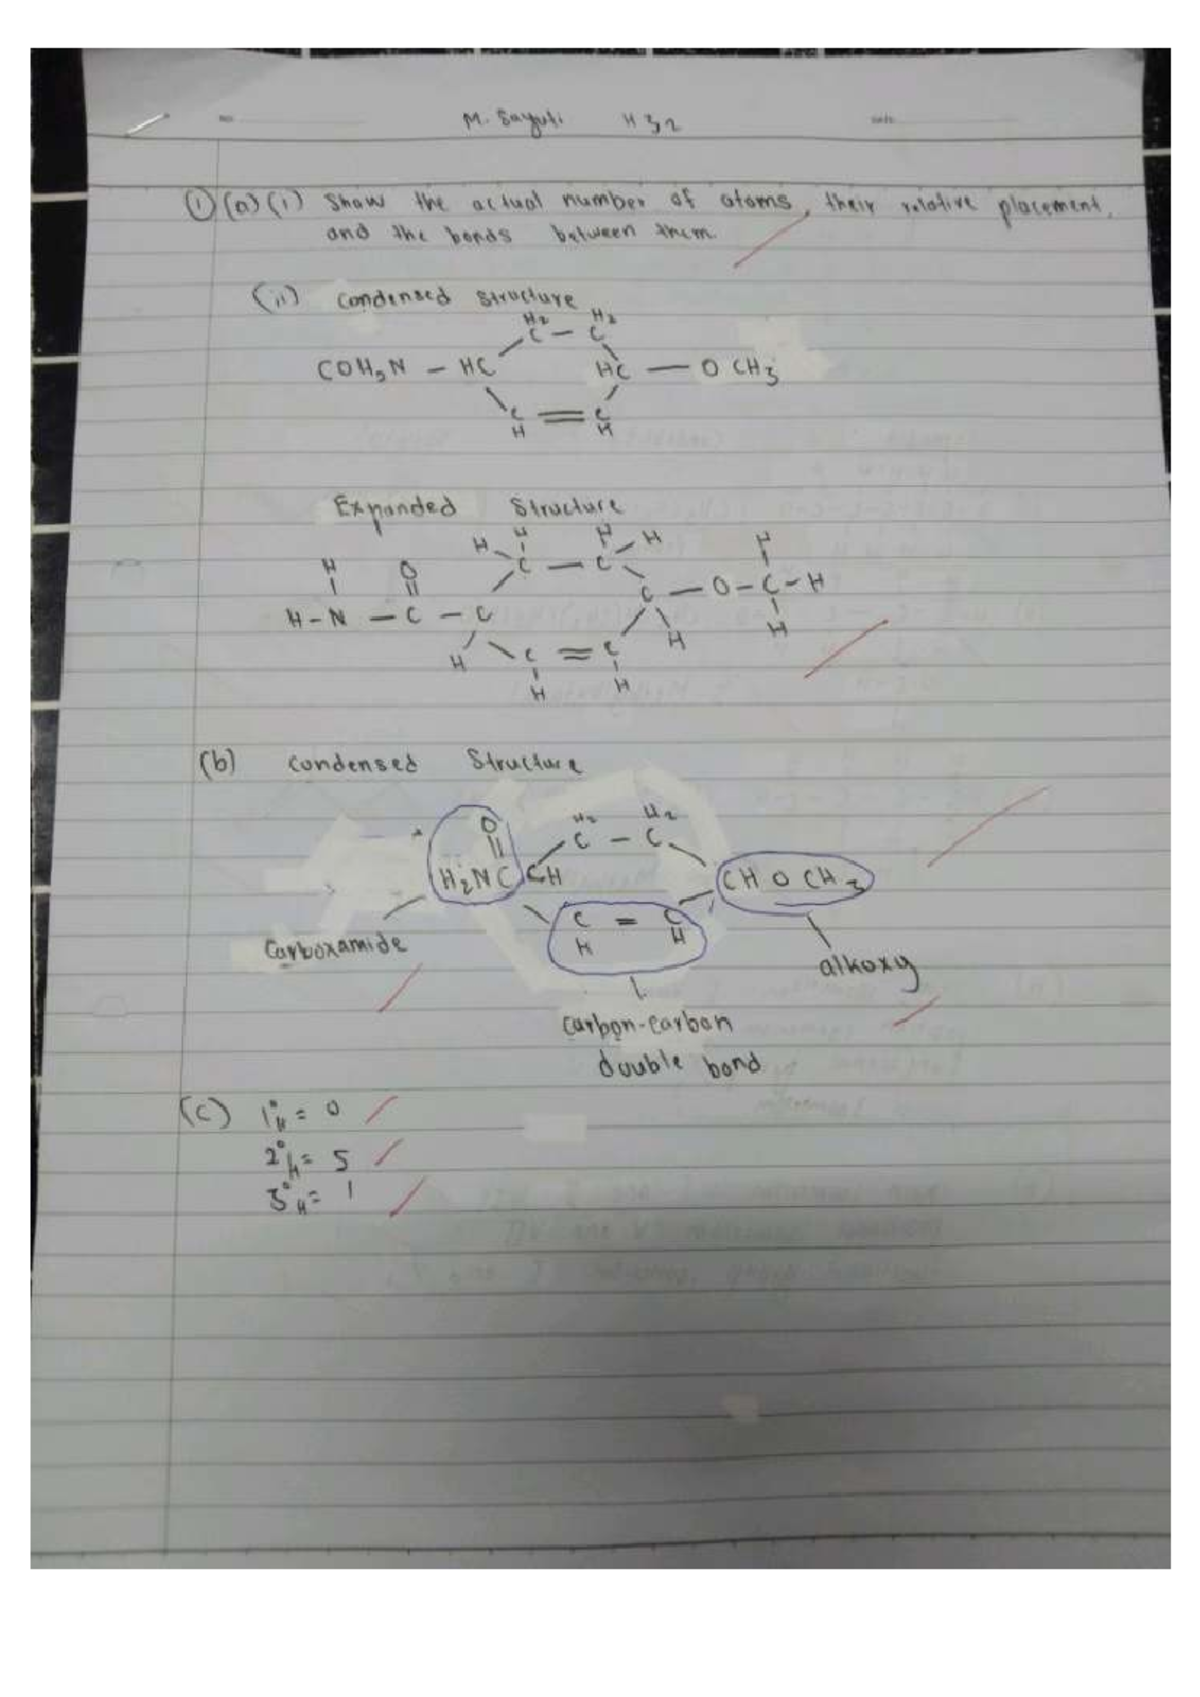 M. Sayuti H32
① (a) (i) Show the actual number of atoms, their relative placement,
and the bonds between them
(ii) Condensed structure
H2 H2
C — C
COH2N — HC HC — O CH3
C = C
H H
Expanded Structure
H H H H
H O C — C H
H - N — C — C C — O - C - H
H C = C H H
H H
(b) Condensed Structure
O H2 H2
|| C — C
H2NC CH CH O CH3
C = C
H H
Carboxamide alkoxy
carbon-carbon
double bond
(c) 1°H = 0
2°H = 5
3°H = 1